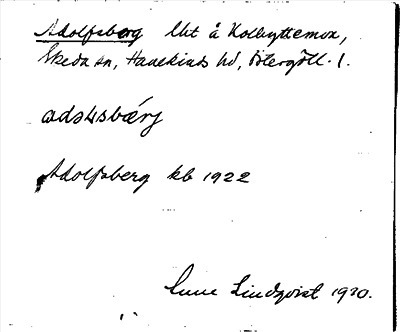 Adolfsberg lht å Kolbyttemon,
Skeda sn, Hanekinds hd, Östergötl. l.
adɷɫsbærj
Adolfsberg kb 1922
Sune Lindqvist 1930.